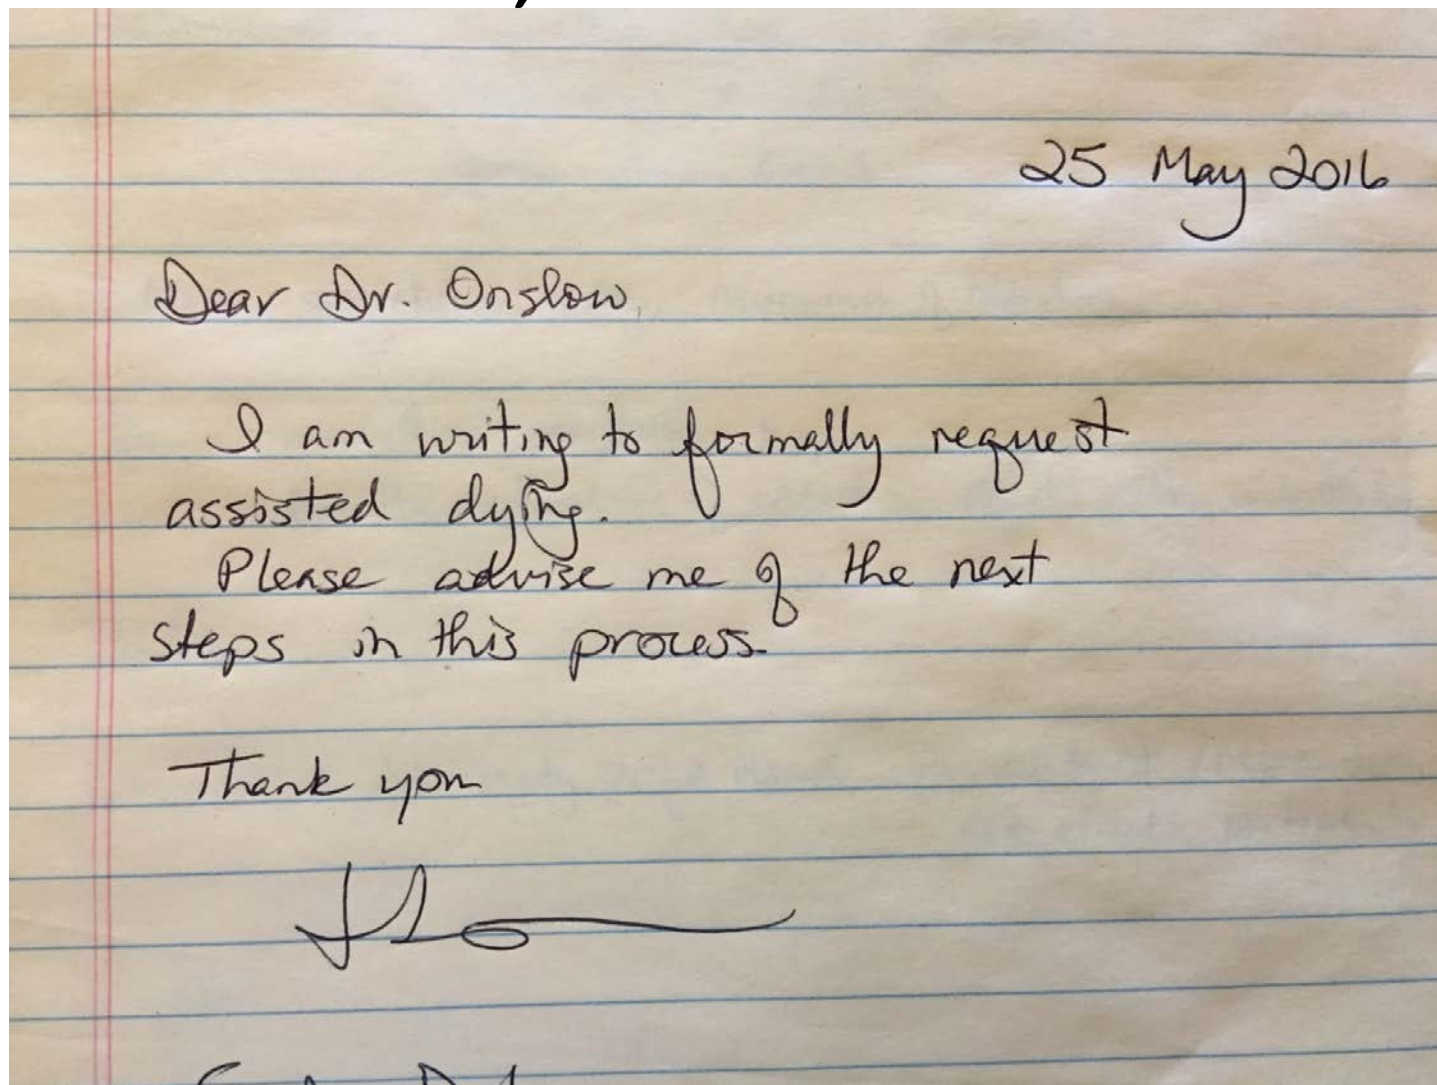 25 May 2016
Dear Dr. Onslow,
I am writing to formally request
assisted dying.
Please advise me of the next
steps in this process.
Thank you